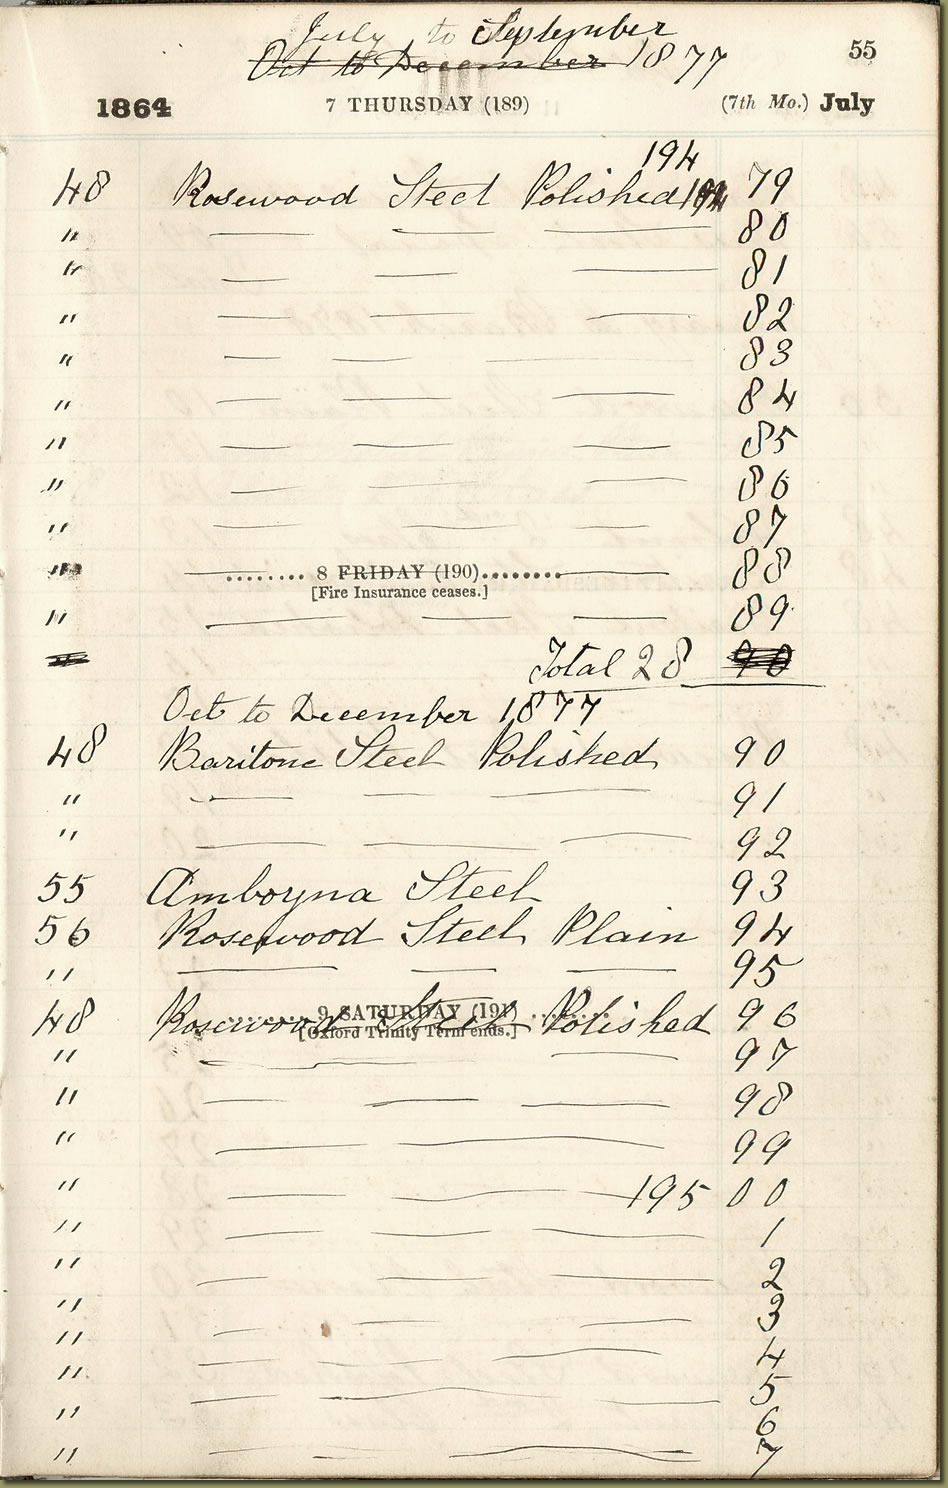 July to September
Oct to December 1877
55
1864 7 THURSDAY (189) (7th Mo.) July
194
48 Rosewood Steel Polished 194 79
" — — — 80
" — — — 81
" — — — 82
" — — — 83
" — — — 84
" — — — 85
" — — — 86
" — — — 87
" — 8 FRIDAY (190) — 88
[Fire Insurance ceases.]
" — — — 89
Total 28 90
Oct to December 1877
48 Baritone Steel Polished 90
" — — — 91
" — — — 92
55 Amboyna Steel 93
56 Rosewood Steel Plain 94
" — — — 95
48 Rosewood Steel Polished 96
9 SATURDAY (191)
[Oxford Trinity Term ends.]
" — — — 97
" — — — 98
" — — — 99
" — — — 195 00
" — — — 1
" — — — 2
" — — — 3
" — — — 4
" — — — 5
" 6
" — — — 7